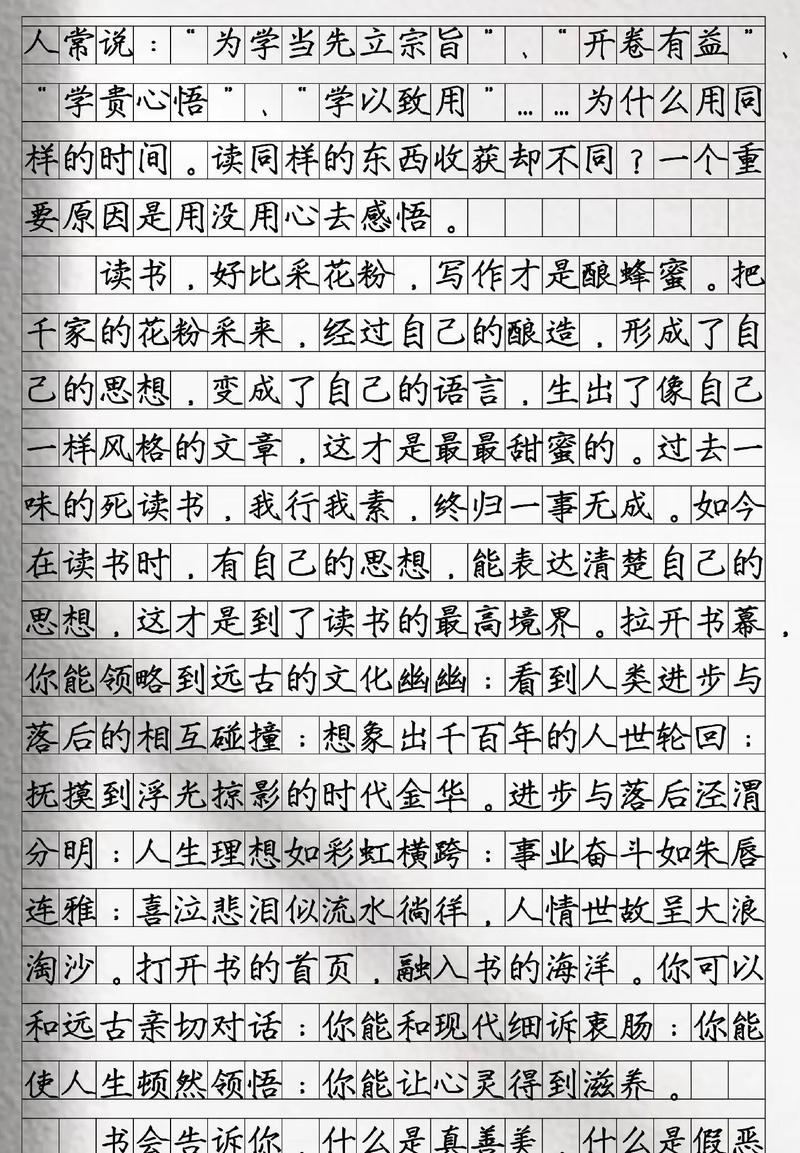 人常说：“为学当先立宗旨”、“开卷有益”、
“学贵心悟”、“学以致用”……为什么用同
样的时间。读同样的东西收获却不同？一个重
要原因是用没用心去感悟。
读书，好比采花粉，写作才是酿蜂蜜。把
千家的花粉采来，经过自己的酿造，形成了自
己的思想，变成了自己的语言，生出了像自己
一样风格的文章，这才是最最甜蜜的。过去一
味的死读书，我行我素，终归一事无成。如今
在读书时，有自己的思想，能表达清楚自己的
思想，这才是到了读书的最高境界。拉开书幕，
你能领略到远古的文化幽幽：看到人类进步与
落后的相互碰撞：想象出千百年的人世轮回：
抚摸到浮光掠影的时代金华。进步与落后泾渭
分明：人生理想如彩虹横跨：事业奋斗如朱唇
连雅：喜泣悲泪似流水徜徉，人情世故呈大浪
淘沙。打开书的首页，融入书的海洋。你可以
和远古亲切对话：你能和现代细诉衷肠：你能
使人生顿然领悟：你能让心灵得到滋养。
书会告诉你，什么是真善美，什么是假恶